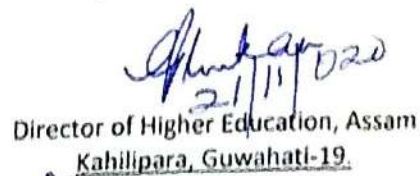 21/11/2020
Director of Higher Education, Assam
Kahilipara, Guwahati-19.